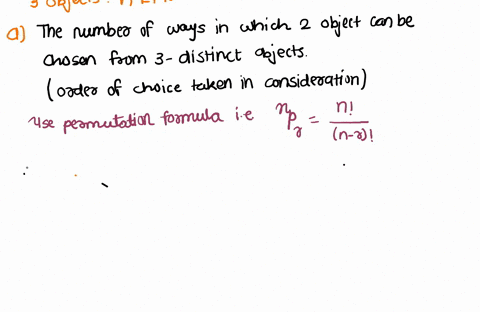 3 objects :
a) The number of ways in which 2 object can be
chosen from 3- distinct objects.
(order of choice taken in consideration)
use permutation formula i.e nPr = n! / (n-r)!
∴